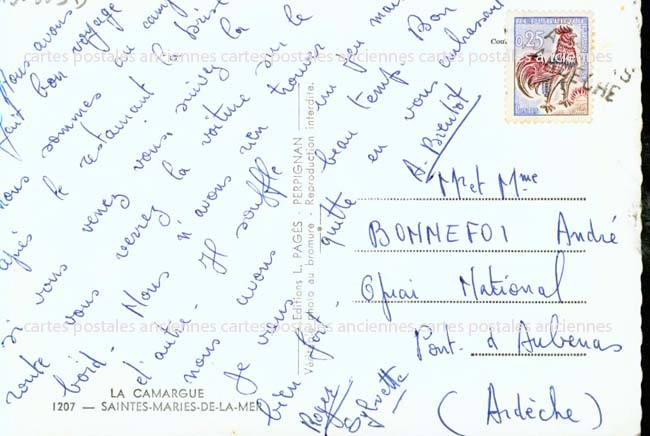 Nous avons
fait bon voyage
nous sommes au camp
après le restaurant la brise
si vous venez vous suivez la
route vous verrez la voiture sur le
bord - Nous n'avons rien trouver
d'autre - Il souffle un peu mais
nous avons beau temps Bon
Je vous quitte en vous embrassant
bien fort,
A - Bientôt
Roger
Sylvette
Mr et Mme
BONNEFOI André
Quai National
Pont - d Aubenas
(Ardèche)
0,25
LA CAMARGUE
1207 — SAINTES-MARIES-DE-LA-MER
Editions L. PAGÈS - PERPIGNAN
photo au bromure - Reproduction interdite.
cartes postales anciennes cartes postales anciennes cartes postales anciennes
cartes postales anciennes cartes postales anciennes cartes postales anciennes